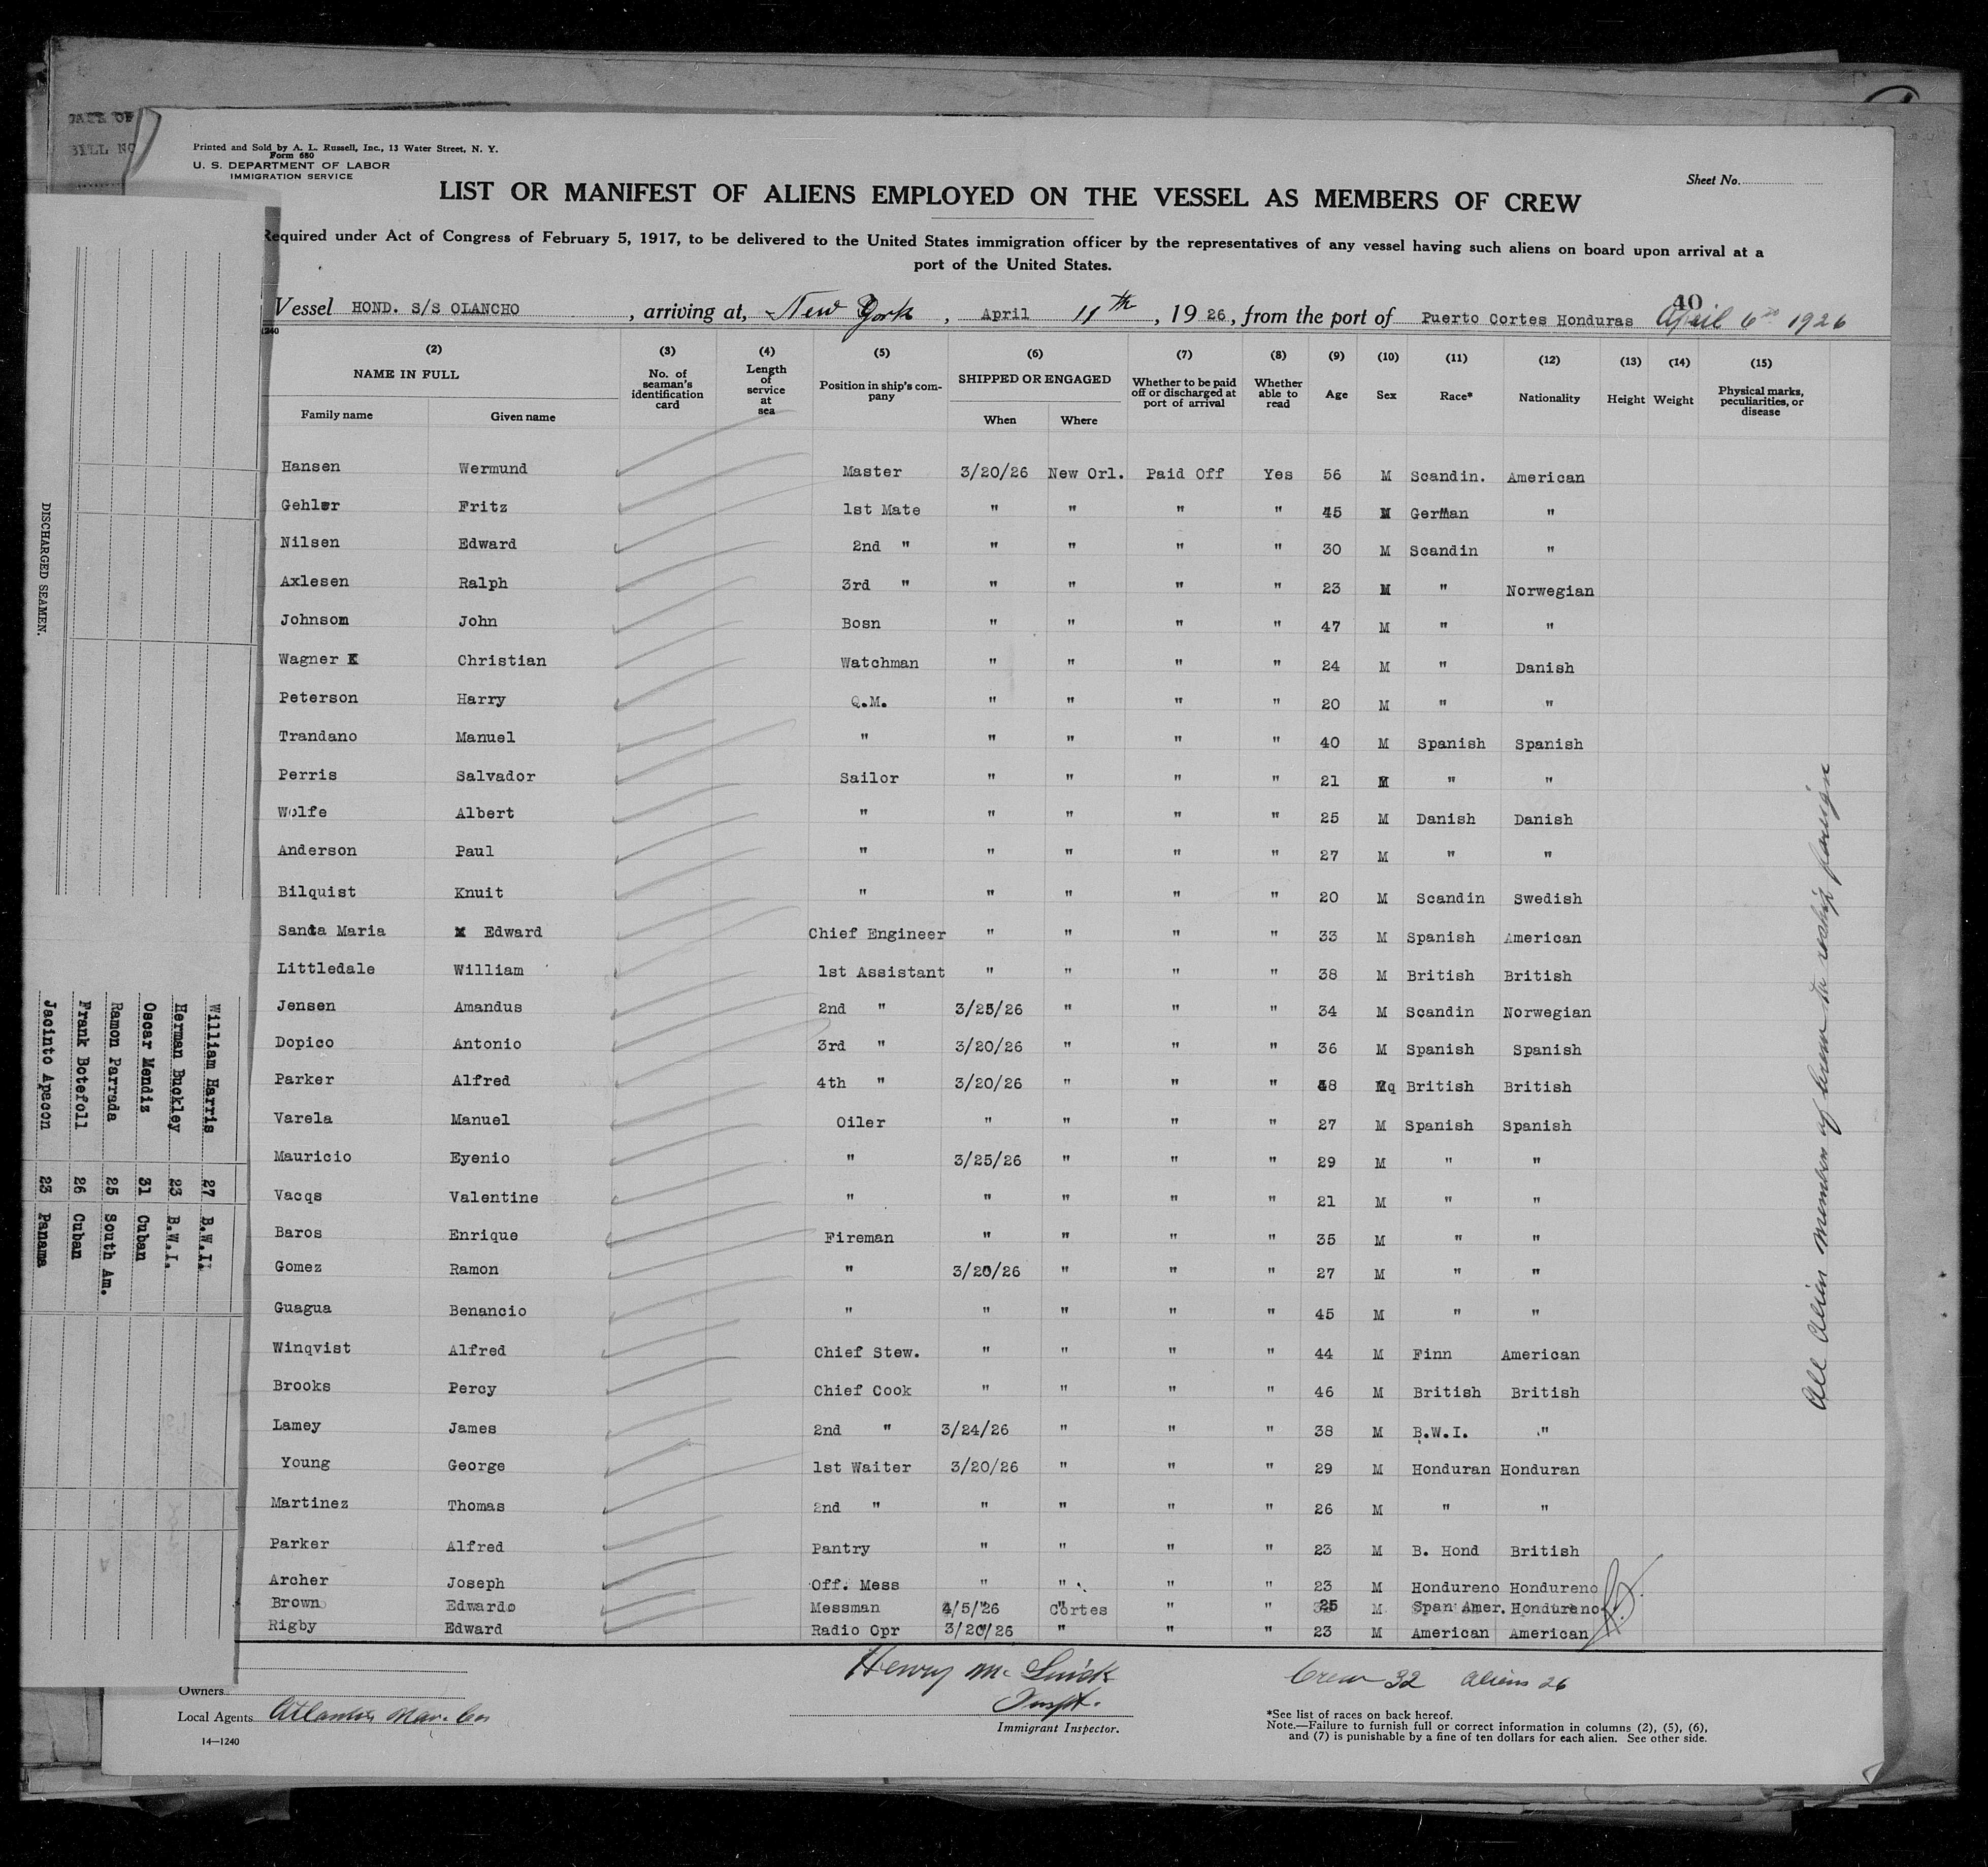 DATE OF
BILL NO
Printed and Sold by A. L. Russell, Inc., 13 Water Street, N. Y.
Form 680
U. S. DEPARTMENT OF LABOR
IMMIGRATION SERVICE
Sheet No.
LIST OR MANIFEST OF ALIENS EMPLOYED ON THE VESSEL AS MEMBERS OF CREW
Required under Act of Congress of February 5, 1917, to be delivered to the United States immigration officer by the representatives of any vessel having such aliens on board upon arrival at a
port of the United States.
40
Vessel HOND. S/S OLANCHO, arriving at, New York, April 11th, 1926, from the port of Puerto Cortes Honduras April 6th 1926
1240
(2) (3) (4) (5) (6) (7) (8) (9) (10) (11) (12) (13) (14) (15)
NAME IN FULL No. of seaman's identification card Length of service at sea Position in ship's company SHIPPED OR ENGAGED Whether to be paid off or discharged at port of arrival Whether able to read Age Sex Race* Nationality Height Weight Physical marks, peculiarities, or disease
Family name Given name When Where
Hansen Wermund Master 3/20/26 New Orl. Paid Off Yes 56 M Scandin. American
Gehler Fritz 1st Mate " " " " 45 M German "
Nilsen Edward 2nd " " " " " 30 M Scandin "
Axlesen Ralph 3rd " " " " " 23 M " Norwegian
Johnson John Bosn " " " " 47 M " "
Wagner K Christian Watchman " " " " 24 M " Danish
Peterson Harry Q.M. " " " " 20 M " "
Trandano Manuel " " " " " 40 M Spanish Spanish
Perris Salvador Sailor " " " " 21 M " "
Wolfe Albert " " " " " 25 M Danish Danish
Anderson Paul " " " " " 27 M " "
Bilquist Knuit " " " " " 20 M Scandin Swedish
Santa Maria Edward Chief Engineer " " " " 33 M Spanish American
Littledale William 1st Assistant " " " " 38 M British British
Jensen Amandus 2nd " 3/25/26 " " " 34 M Scandin Norwegian
Dopico Antonio 3rd " 3/20/26 " " " 36 M Spanish Spanish
Parker Alfred 4th " 3/20/26 " " " 48 M British British
Varela Manuel Oiler " " " " 27 M Spanish Spanish
Mauricio Eyenio " 3/25/26 " " " 29 M " "
Vacqs Valentine " " " " " 21 M " "
Baros Enrique Fireman " " " " 35 M " "
Gomez Ramon " 3/20/26 " " " 27 M " "
Guagua Benancio " " " " " 45 M " "
Winqvist Alfred Chief Stew. " " " " 44 M Finn American
Brooks Percy Chief Cook " " " " 46 M British British
Lamey James 2nd " 3/24/26 " " " 38 M B.W.I. "
Young George 1st Waiter 3/20/26 " " " 29 M Honduran Honduran
Martinez Thomas 2nd " " " " " 26 M " "
Parker Alfred Pantry " " " " 23 M B. Hond British
Archer Joseph Off. Mess " " " " 23 M Hondureno Hondureno
Brown Edwardo Messman 4/5/26 Cortes " " 25 M Span Amer. Hondureno
Rigby Edward Radio Opr 3/20/26 " " " 23 M American American
All Alien members of crew to reship foreign
Henry Mc Quick
Inspt.
Immigrant Inspector.
Crew 32 Aliens 26
Owners
Local Agents Atlantic Nav. Co
14—1240
*See list of races on back hereof.
Note.—Failure to furnish full or correct information in columns (2), (5), (6),
and (7) is punishable by a fine of ten dollars for each alien. See other side.
DISCHARGED SEAMEN.
William Harris 27 B.W.I.
Herman Buckley 23 B.W.I.
Oscar Mendiz 31 Cuban
Ramon Parrada 25 South Am.
Frank Botefoll 26 Cuban
Jacinto Apacon 23 Panama